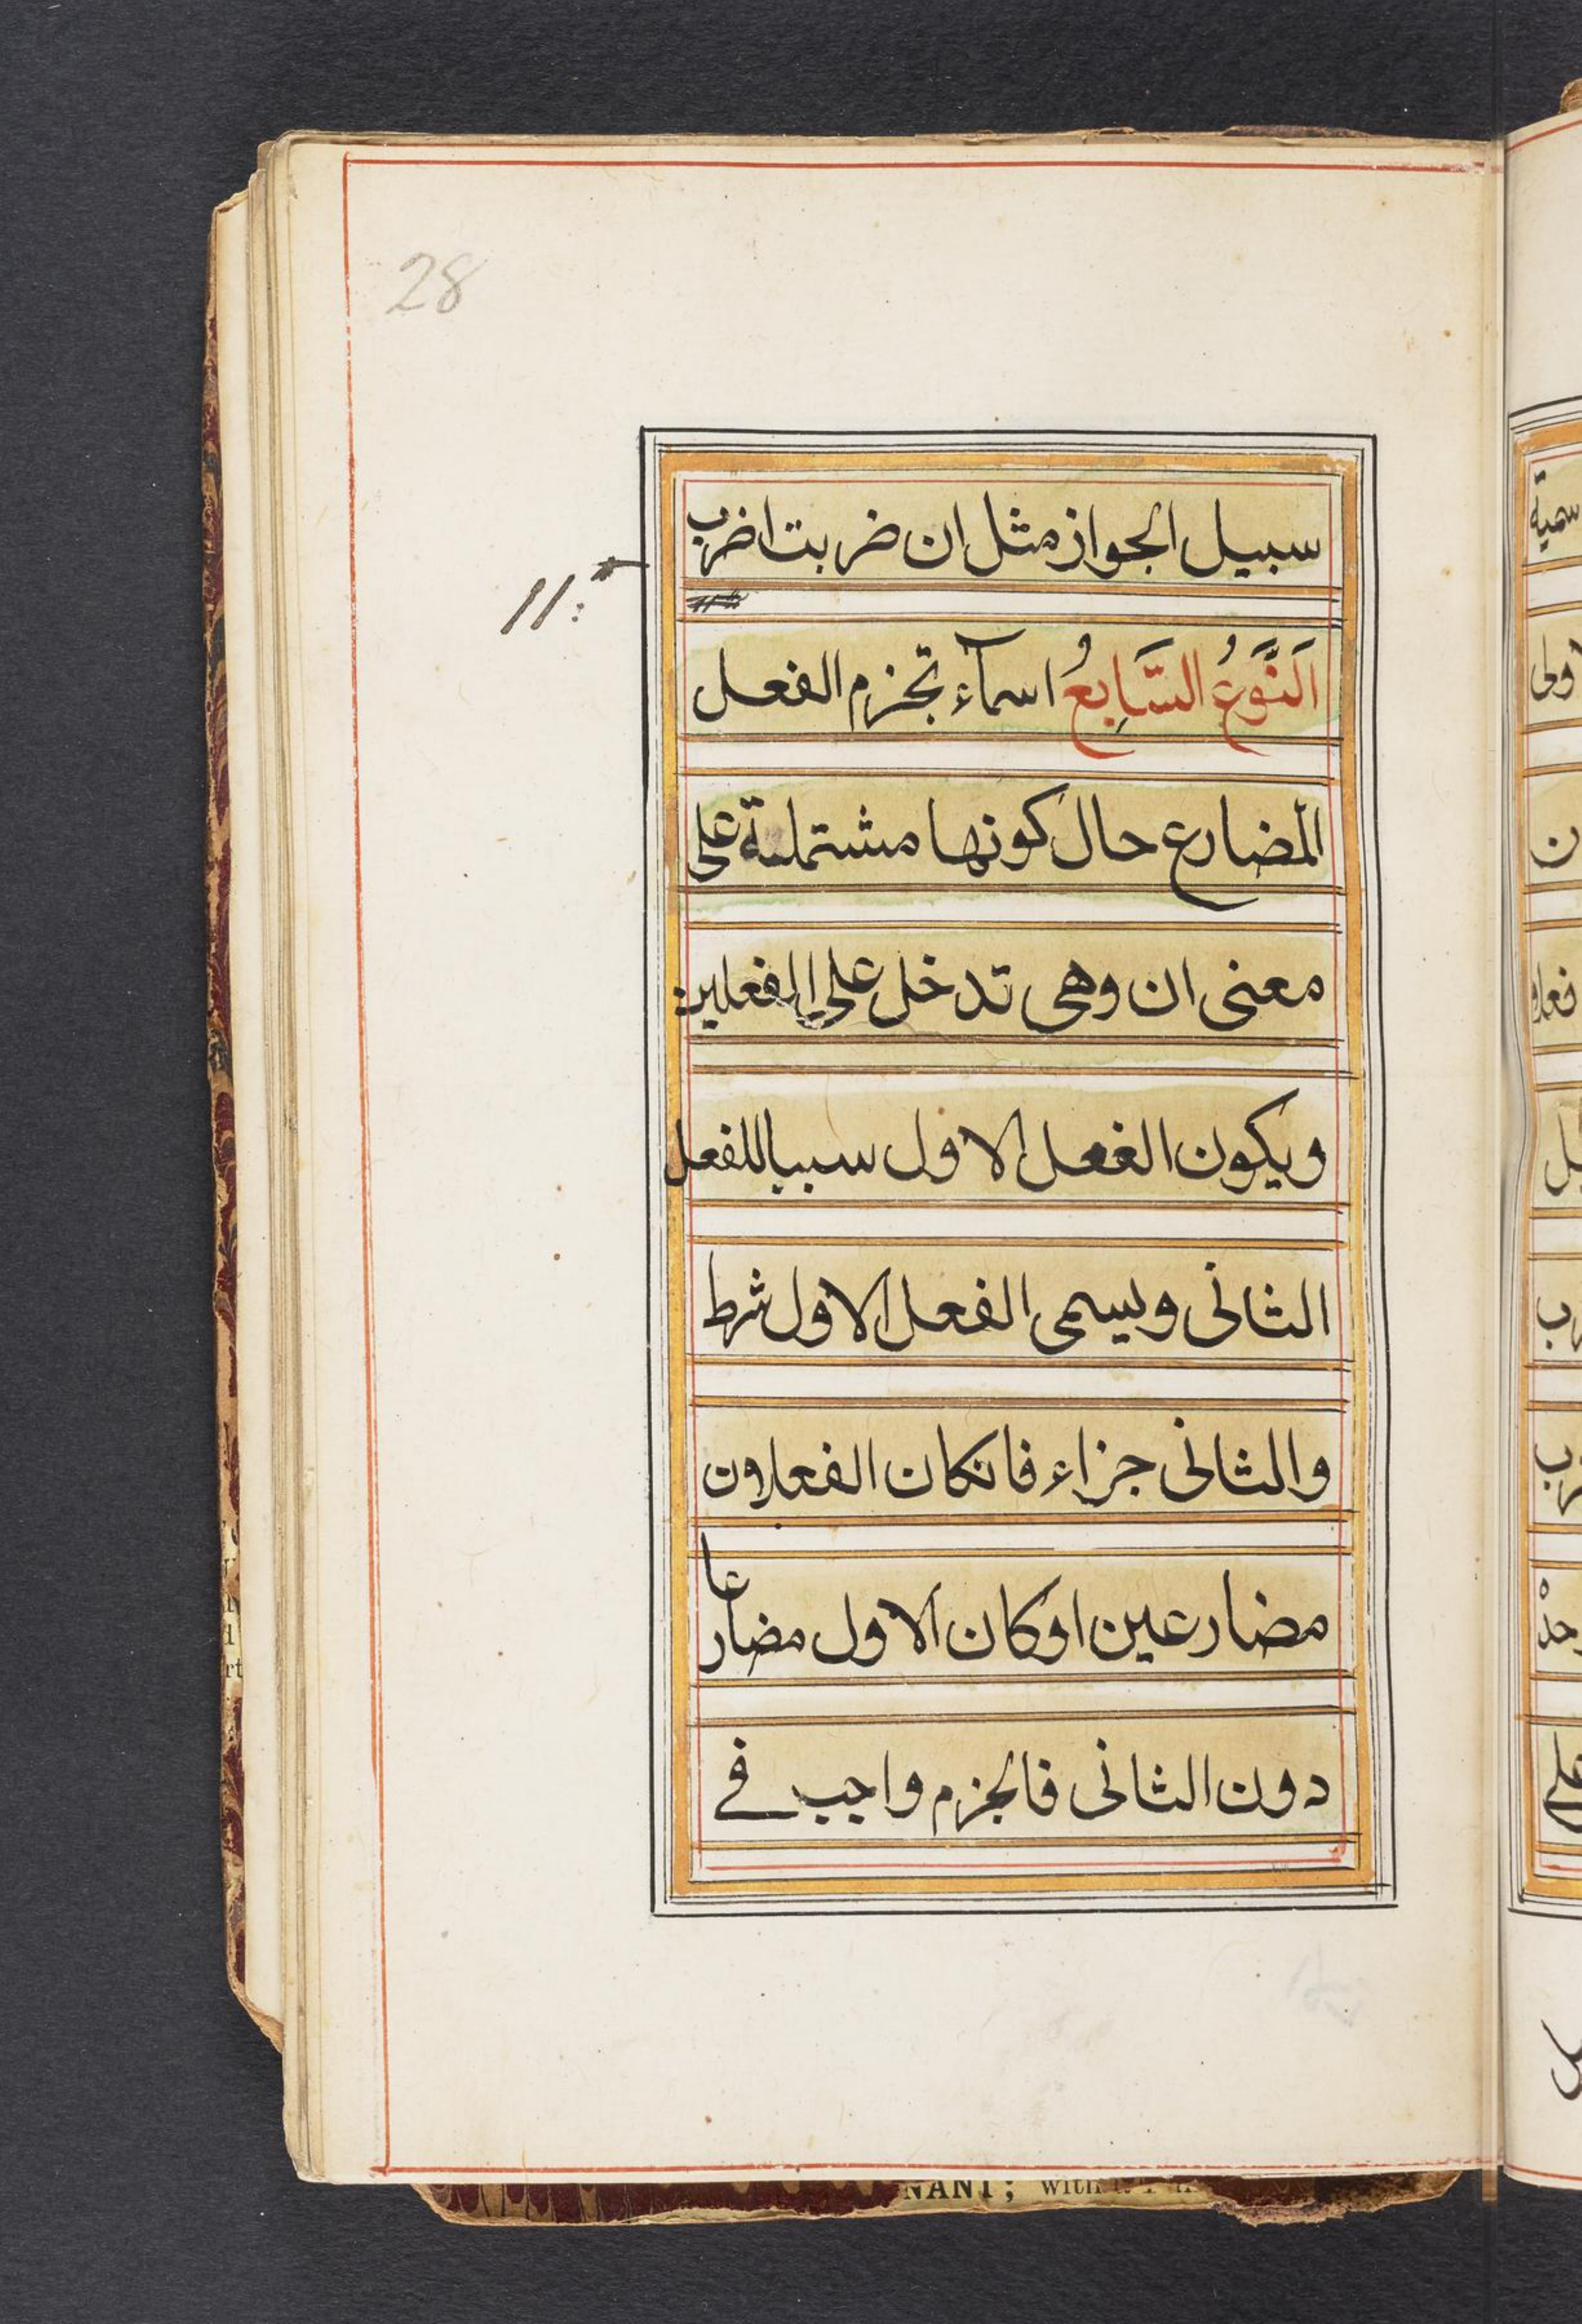 28
سبيل الجواز مثل ان ضربت اضرب
11:
اَلنَّوَعُ السَّابِعُ اسمآء تجزم الفعل
المضارع حال كونها مشتملة على
معنى ان وهى تدخل على الفعلين:
ويكون الفعل الاول سببا للفعل
الثانى ويسمى الفعل الاول شرط
والثانى جزاء فانكان الفعلان
مضارعين او كان الاول مضارعا
دون الثانى فالجزم واجب فے
NANT; with